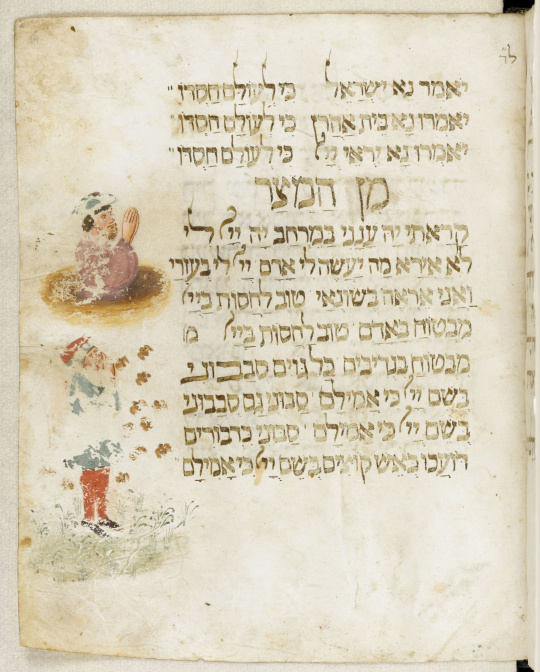 יאמר נא ישראל כי לעולם חסדו
יאמרו נא בית אהרן כי לעולם חסדו
יאמרו נא יראי יי כי לעולם חסדו
מן המצר
קראתי יה ענני במרחב יה יי לי
לא אירא מה יעשה לי אדם יי לי בעזרי
ואני אראה בשונאי טוב לחסות ביי
מבטוח באדם טוב לחסות ביי מ
מבטוח בנדיבים כל גוים סבבוני
בשם יי כי אמילם סבוני גם סבבוני
בשם יי כי אמילם סבוני כדבורים
דועכו כאש קוצים בשם יי כי אמילם